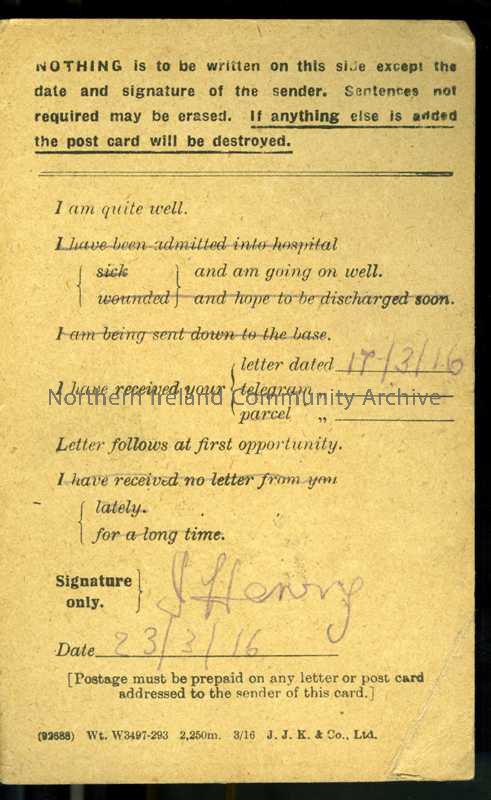 NOTHING is to be written on this side except the
date and signature of the sender. Sentences not
required may be erased. If anything else is added
the post card will be destroyed.
I am quite well.
I have been admitted into hospital
sick
and am going on well.
wounded
and hope to be discharged soon.
I am being sent down to the base.
letter dated 17/3/16
I have received your
telegram „
parcel „
Northern Ireland Community Archive
Letter follows at first opportunity.
I have received no letter from you
lately.
for a long time.
Signature
only.
J Henry
Date 23/3/16
[Postage must be prepaid on any letter or post card
addressed to the sender of this card.]
(92688) Wt. W3497-293 2,250m. 3/16 J. J. K. & Co., Ltd.